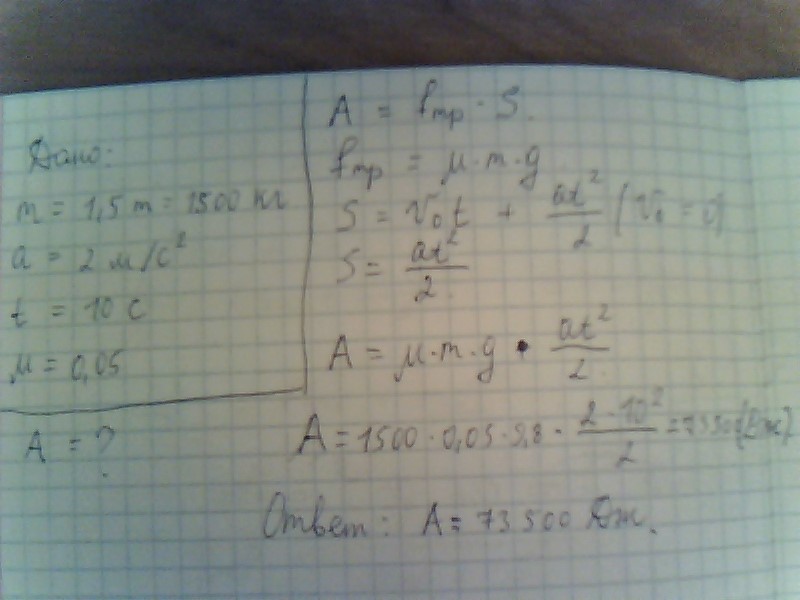 Дано:
m = 1,5 т = 1500 кг
a = 2 м/с²
t = 10 с
μ = 0,05
A = ?
A = fтр · S.
fтр = μ·m·g
S = V₀t + at²/2 (V₀ = 0)
S = at²/2
A = μ·m·g · at²/2
A = 1500 · 0,05 · 9,8 · 2·10²/2 = 73500 (Дж)
Ответ: A = 73500 Дж.